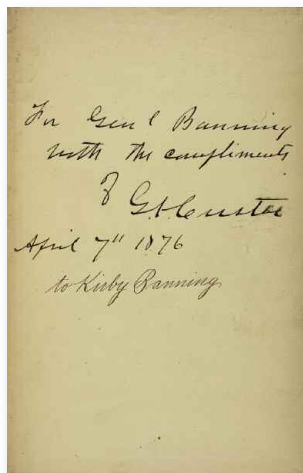 For Genl Banning
with the compliments
of
G A Custer
April 7" 1876
to Kirby Banning